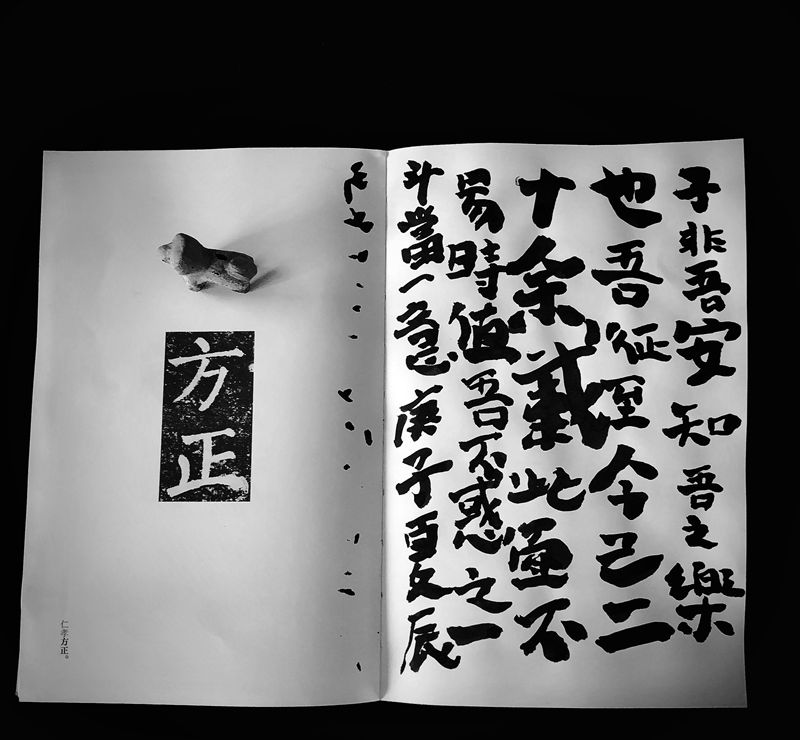 子非吾安知吾之樂
也吾征至今已二
十余載此宣不
易時值吾不惑之一
斗當一意庚子夏辰
方正
仁孝方正。